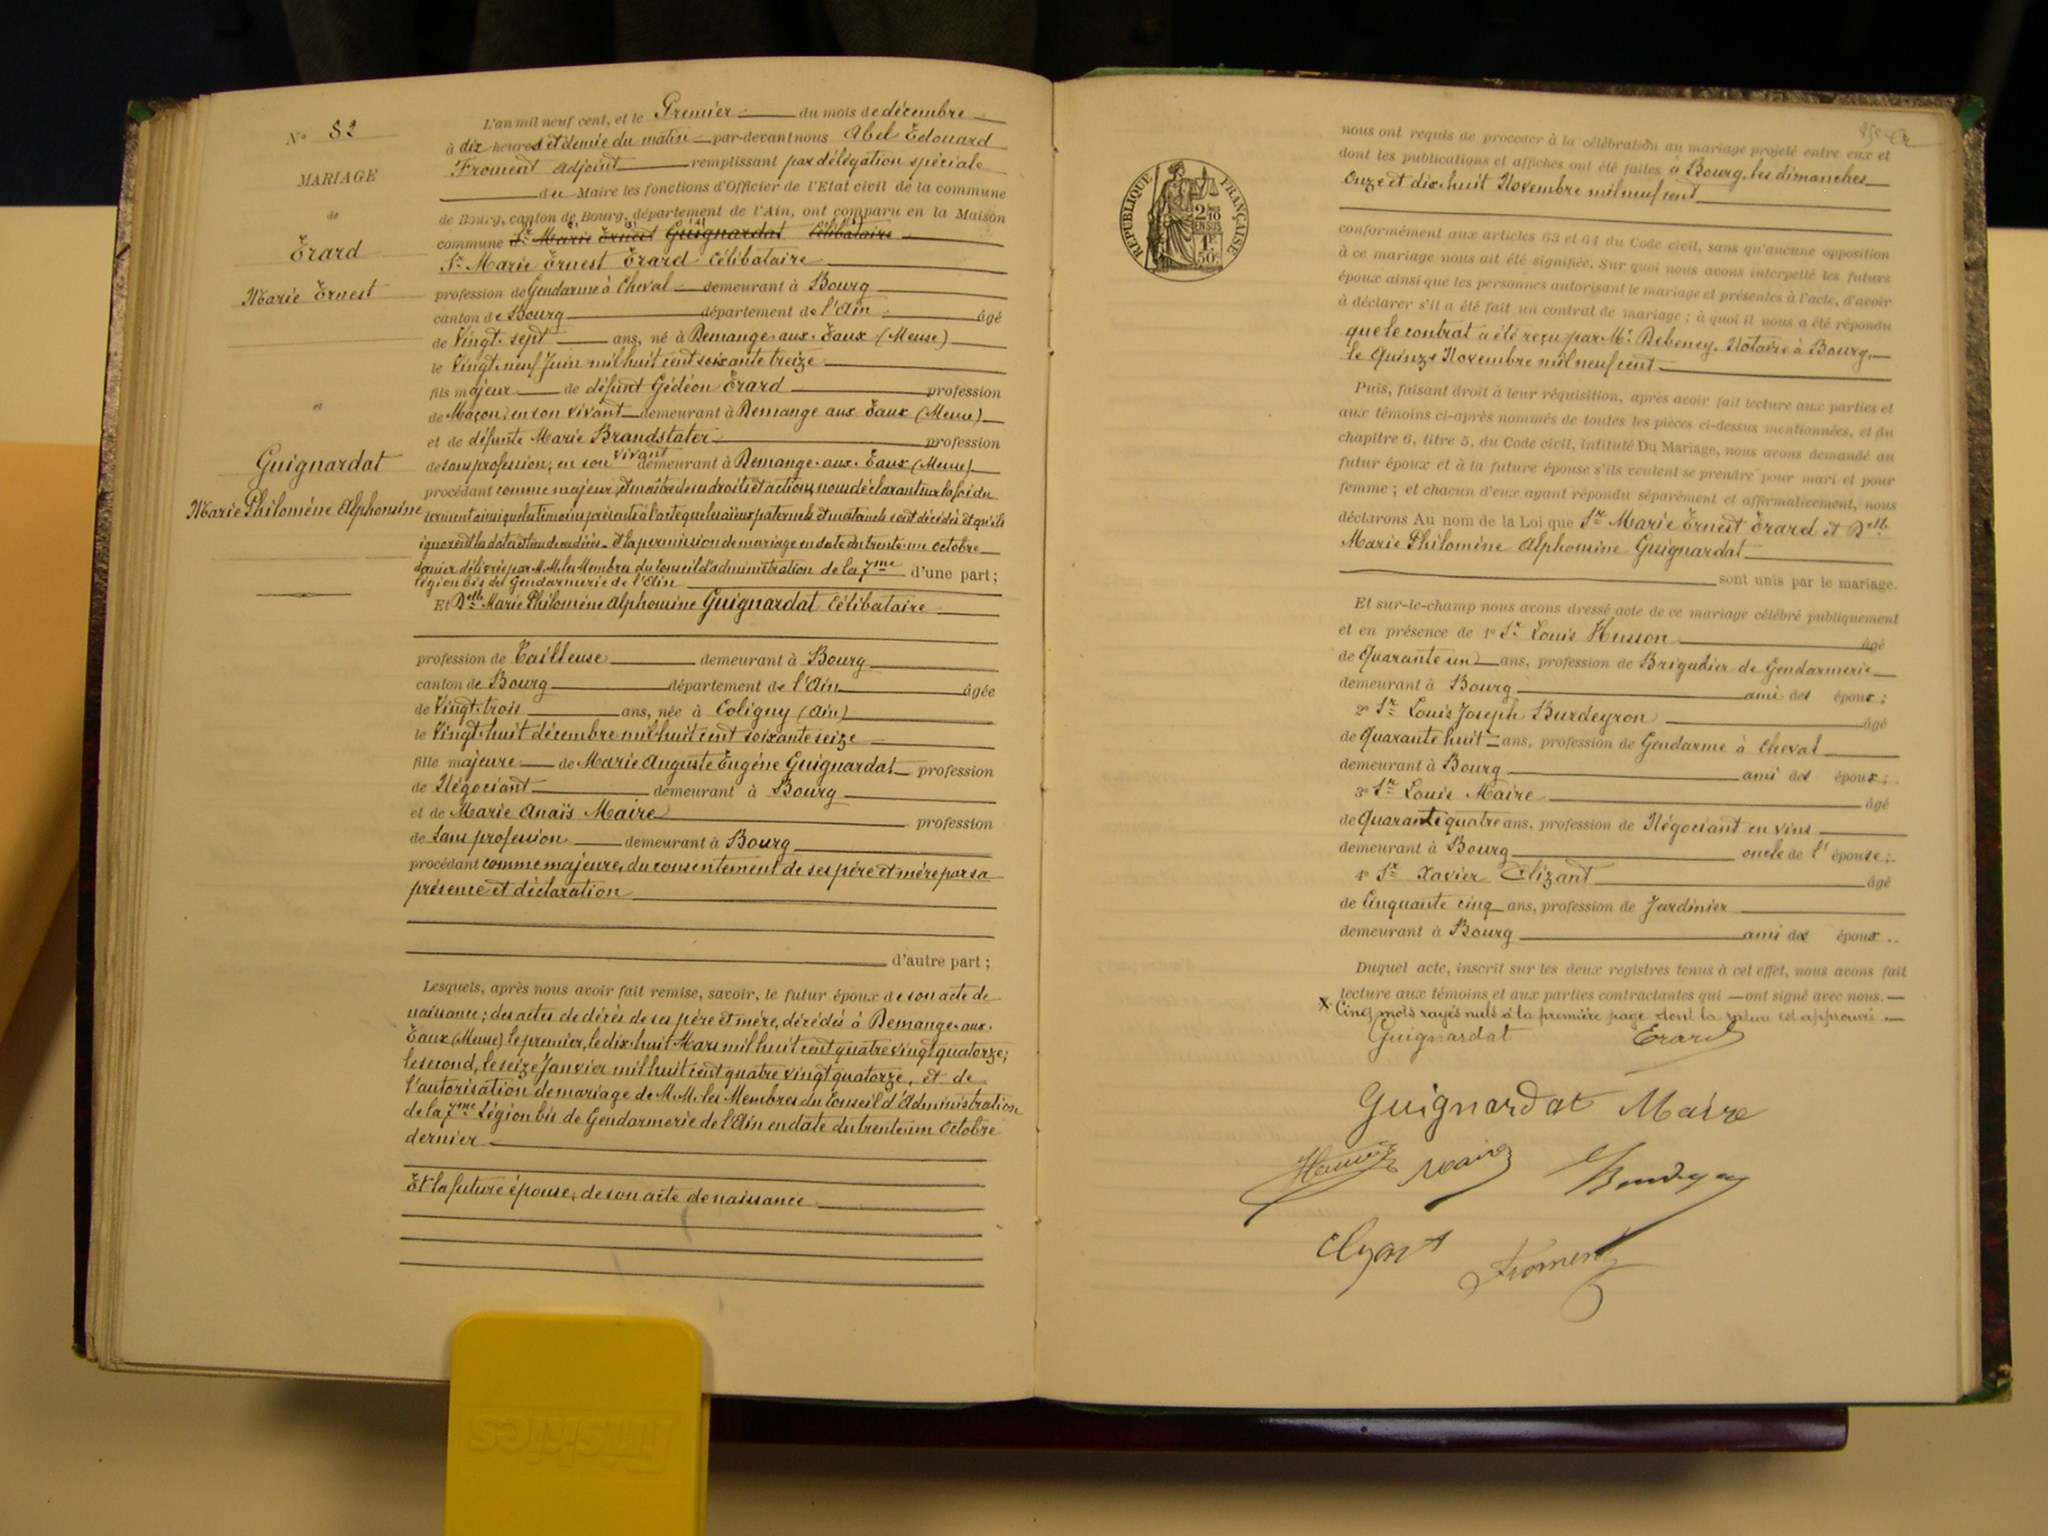 N° 82
MARIAGE
de
Erard
Marie Ernest
et
Guignardat
Marie Philomène Alphonsine
L'an mil neuf cent, et le Premier du mois de décembre
à dix heures et demie du matin par-devant nous Abel Edouard
Froment adjoint remplissant par délégation spéciale
du Maire les fonctions d'Officier de l'Etat civil de la commune
de Bourg, canton de Bourg, département de l'Ain, ont comparu en la Maison
commune Sr Marie Ernest Guignardat Célibataire
Sr Marie Ernest Erard Célibataire
profession de Gendarme à Cheval demeurant à Bourg
canton de Bourg département de l'Ain âgé
de Vingt-sept ans, né à Demange-aux-Eaux (Meuse)
le Vingt-neuf Juin mil huit cent soixante treize
fils majeur de défunt Gédéon Erard profession
de Maçon, en son vivant demeurant à Demange aux Eaux (Meuse)
et de défunte Marie Brandstater profession
de sans profession, en son vivant demeurant à Demange-aux-Eaux (Meuse)
procédant comme majeur et maître de ses droits et actions, nous déclarant sur la foi du
serment ainsi que les témoins présents à l'acte que les aïeux paternels et maternels sont décédés et qu'ils
ignorent la date et lieu des décès. Et la permission de mariage en date du trente-un octobre
dernier délivrée par M.M. les Membres du Conseil d'administration de la 7me d'une part;
légion bis de Gendarmerie de l'Ain
Et Delle Marie Philomène Alphonsine Guignardat Célibataire
profession de Tailleuse demeurant à Bourg
canton de Bourg département de l'Ain âgée
de Vingt-trois ans, née à Coligny (Ain)
le Vingt-huit décembre mil huit cent soixante seize
fille majeure de Marie Auguste Eugène Guignardat profession
de Négociant demeurant à Bourg
et de Marie Anaïs Maire profession
de Sans profession demeurant à Bourg
procédant comme majeure, du consentement de ses père et mère par sa
présence et déclaration
d'autre part;
Lesquels, après nous avoir fait remise, savoir, le futur époux de son acte de
naissance; des actes de décès de ses père et mère, décédés à Demange-aux-
Eaux (Meuse) le premier, le dix-huit Mars mil huit cent quatre vingt quatorze;
le second, le seize Janvier mil huit cent quatre vingt quatorze, et de
l'autorisation de mariage de M.M. les Membres du Conseil d'Administration
de la 7me Légion bis de Gendarmerie de l'Ain en date du trente un Octobre
dernier
Et la future épouse, de son acte de naissance
nous ont requis de procéder à la célébration du mariage projeté entre eux et
dont les publications et affiches ont été faites à Bourg, les dimanches
Onze et dix-huit Novembre mil neuf cent
RÉPUBLIQUE FRANÇAISE
2/10 EN SUS
1F 50c
conformément aux articles 63 et 64 du Code civil, sans qu'aucune opposition
à ce mariage nous ait été signifiée. Sur quoi nous avons interpellé les futurs
époux ainsi que les personnes autorisant le mariage et présentes à l'acte, d'avoir
à déclarer s'il a été fait un contrat de mariage; à quoi il nous a été répondu
que le contrat a été reçu par Me Debeney, Notaire à Bourg,
le Quinze Novembre mil neuf cent
Puis, faisant droit à leur réquisition, après avoir fait lecture aux parties et
aux témoins ci-après nommés de toutes les pièces ci-dessus mentionnées, et du
chapitre 6, titre 5, du Code civil, intitulé Du Mariage, nous avons demandé au
futur époux et à la future épouse s'ils veulent se prendre pour mari et pour
femme; et chacun d'eux ayant répondu séparément et affirmativement, nous
déclarons Au nom de la Loi que Sr Marie Ernest Erard et Delle
Marie Philomène Alphonsine Guignardat
sont unis par le mariage.
Et sur-le-champ nous avons dressé acte de ce mariage célébré publiquement
et en présence de 1° Sr Louis Husson âgé
de Quarante un ans, profession de Brigadier de Gendarmerie
demeurant à Bourg ami des époux;
2° Sr Louis Joseph Burdeyron âgé
de Quarante huit ans, profession de Gendarme à Cheval
demeurant à Bourg ami des époux;
3° Sr Louis Maire âgé
de Quarante quatre ans, profession de Négociant en vins
demeurant à Bourg oncle de l'épouse;
4° Sr Xavier Clizant âgé
de Cinquante cinq ans, profession de Jardinier
demeurant à Bourg ami des époux.
Duquel acte, inscrit sur les deux registres tenus à cet effet, nous avons fait
lecture aux témoins et aux parties contractantes qui ont signé avec nous.
X Cinq mots rayés nuls à la première page dont la rature est approuvée
Guignardat Erard
Guignardat Maire
Husson Maire Burdeyron
Clizant Froment